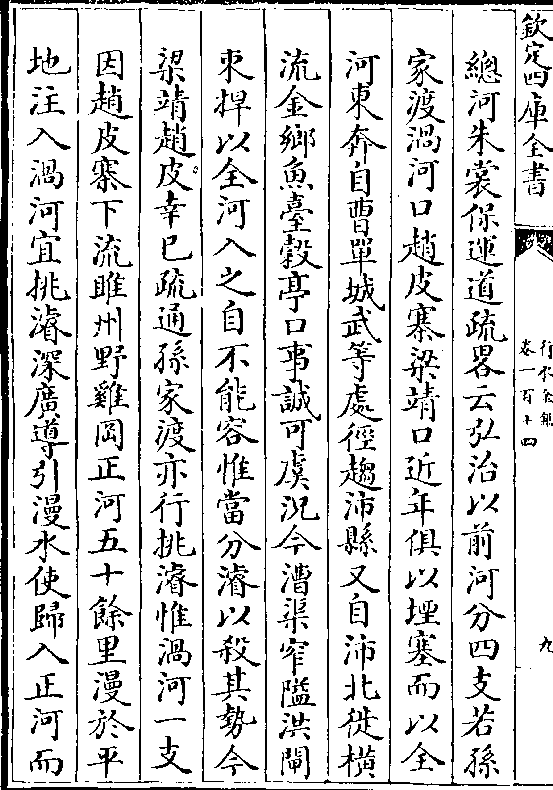 欽定四庫全書
行水金鑑
卷一百十四
九
總河朱裳保運道疏畧云弘治以前河分四支若孫
家渡渦河口趙皮寨梁靖口近年俱以堙塞而以全
河東奔自曹單城武等處徑趨沛縣又自沛北徙橫
流金鄉魚臺榖亭口事誠可虞況今漕渠窄隘洪閘
束捍以全河入之自不能容惟當分濬以殺其勢今
梁靖趙皮幸已疏通孫家渡亦行挑濬惟渦河一支
因趙皮寨下流睢州野雞岡正河五十餘里漫於平
地注入渦河宜挑濬深廣導引漫水使歸入正河而